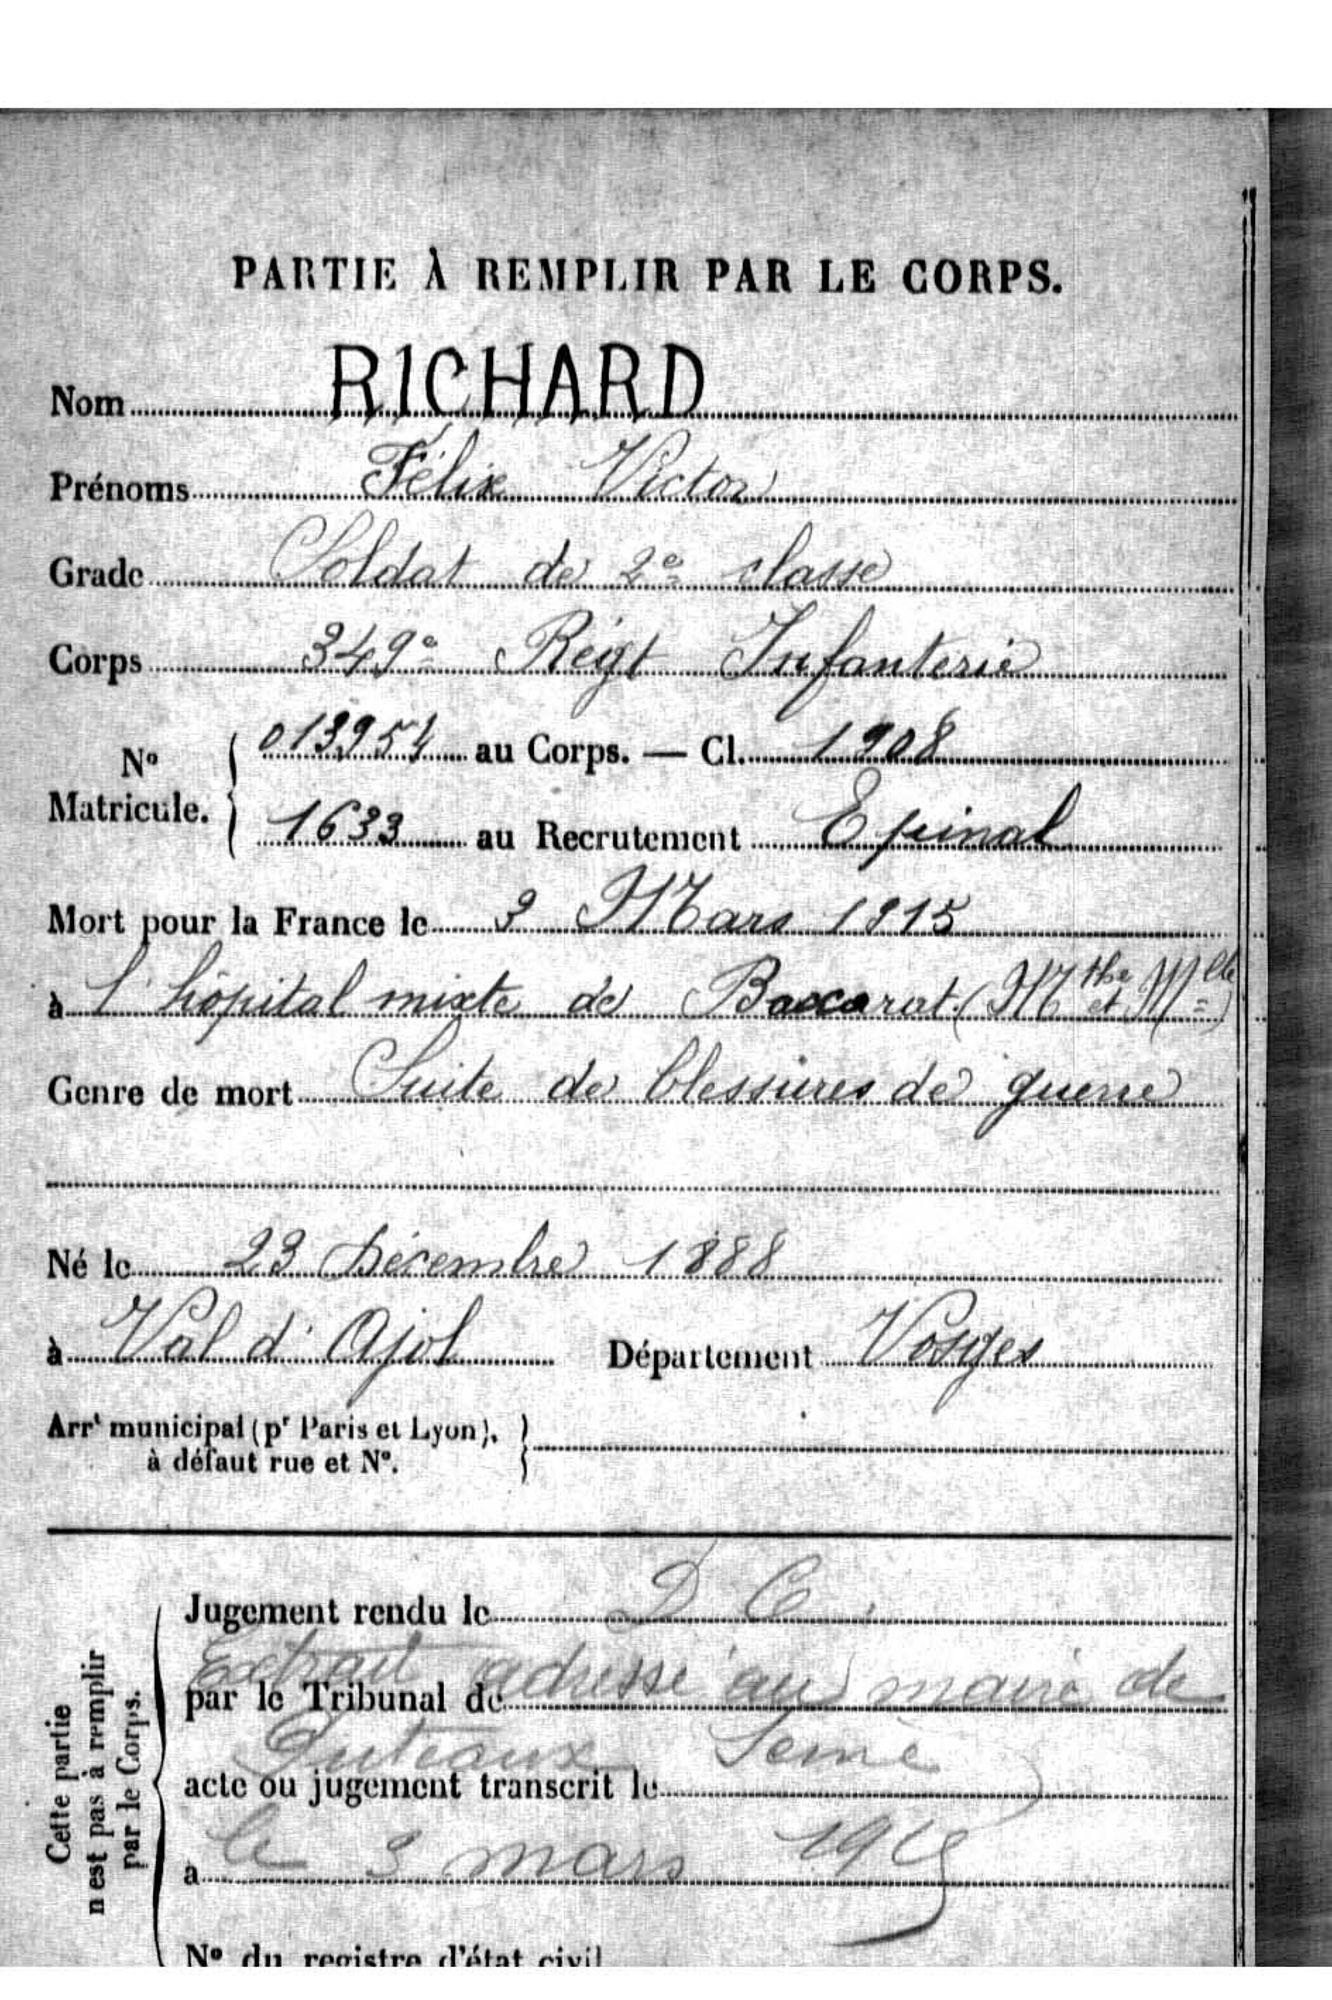 PARTIE À REMPLIR PAR LE CORPS.
Nom RICHARD
Prénoms Félix Victor
Grade Soldat de 2e classe
Corps 349e Régt Infanterie
No Matricule. { 013954 au Corps. — Cl. 1908
1633 au Recrutement Epinal
Mort pour la France le 3 Mars 1915
à l'hôpital mixte de Baccarat (Mthe et Mlle)
Genre de mort Suite de blessures de guerre
Né le 23 Décembre 1888
à Val d'Ajol Département Vosges
Arrt municipal (pr Paris et Lyon), à défaut rue et No. }
Cette partie n'est pas à remplir par le Corps.
Jugement rendu le D C.
Extrait adressé au maire de
par le Tribunal de
Puteaux Seine
acte ou jugement transcrit le
à le 3 mars 1915
No du registre d'état civil